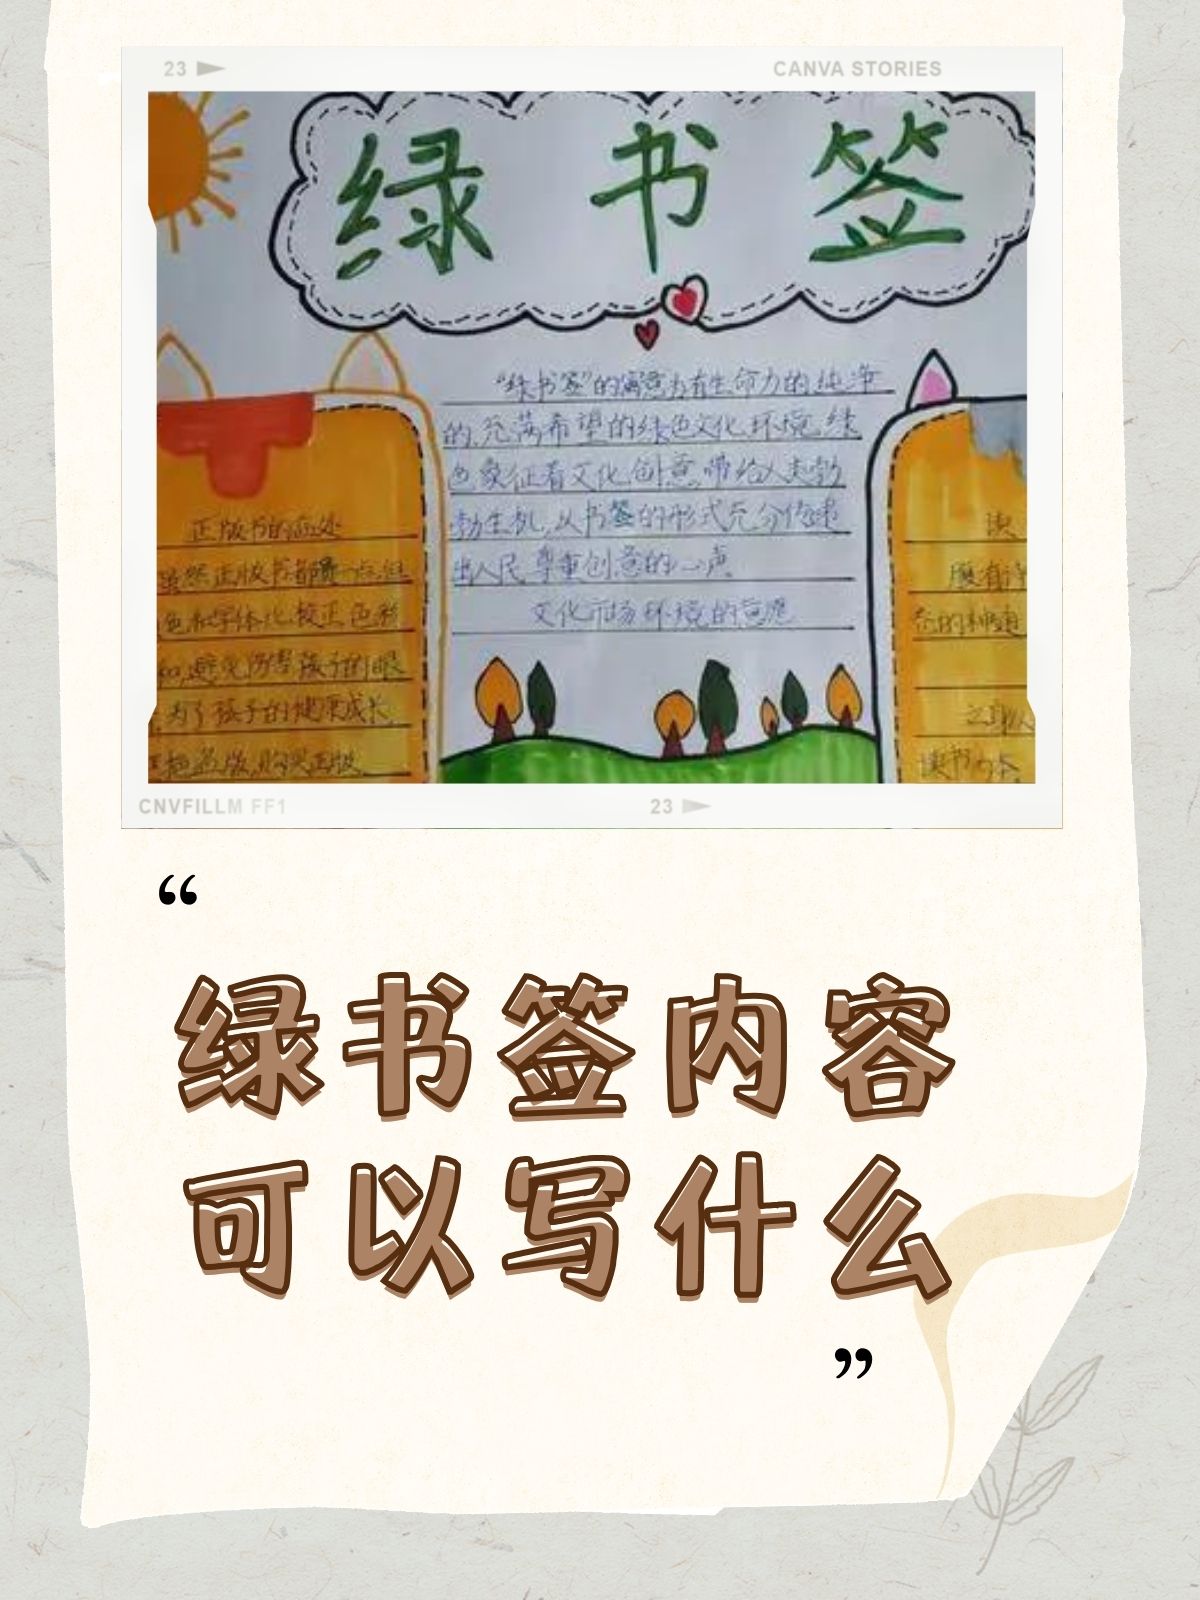 23
CANVA STORIES
绿书签
"绿书签"的寓意为有生命力的纯净
的,充满希望的绿色文化环境,绿
色象征着文化创意,带给人类勃
勃生机,从书签的形式充分传递
出人民尊重创意的心声
文化市场环境的意愿
正版书的益处
虽然正版书都贵一点,但
色和字体比较正,色彩
和,避免伤害孩子的眼
,为了孩子的健康成长,
拒盗版,购买正版
读
腹有诗
之郎人
读书
CNVFILLM FF1
23
“
绿书签内容
可以写什么
”